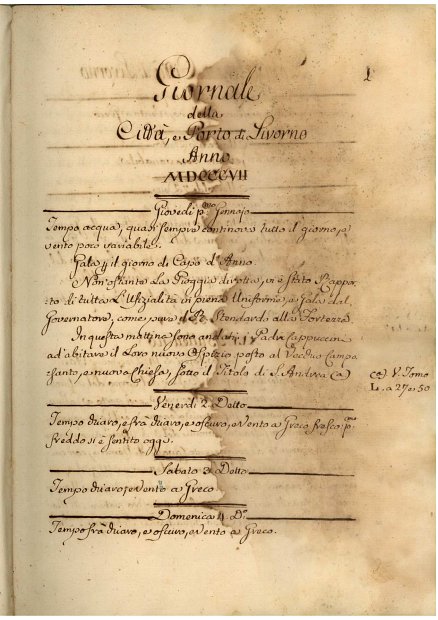 1
Giornale
della
Città, e Porto di Livorno
Anno
MDCCCVII
Giovedì p.mo Gennajo
Tempo acqua, quasi sempre continova tutto il giorno, e
vento poco variabile.
Gala p. il giorno di Capo d'Anno.
Non'ostante la Pioggia dirotta, vi è stato Rappor
to di tutta l'Ufizialità in piena Uniforme, e Gala dal
Governatore, come pure il R. Stendardo alla Fortezza.
In questa mattina sono andati i Padri Cappuccini
ad'abitare il loro nuovo Ospizio posto al Vecchio Campo
santo, e nuova Chiesa, sotto il Titolo di S. Andrea (a)
(a) V. Tomo
L. a 27 e 50
Venerdì 2 Detto
Tempo chiaro, e frà chiaro, e oscuro, e Vento a Greco fresco, p.
freddo si è sentito oggi.
Sabato 3 Detto
Tempo chiaro, e Vento a Greco.
Domenica 4. D.o
Tempo frà chiaro, e oscuro, e Vento a Greco.